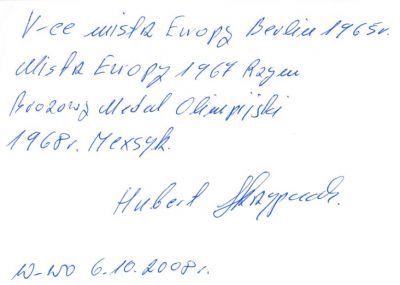 V-ce mistrz Europy Berlin 1965r.
Mistrz Europy 1967 Rzym
Brązowy Medal Olimpijski
1968r. Mexsyk.
Hubert Skrzypczak.
W-wo 6.10.2008r.